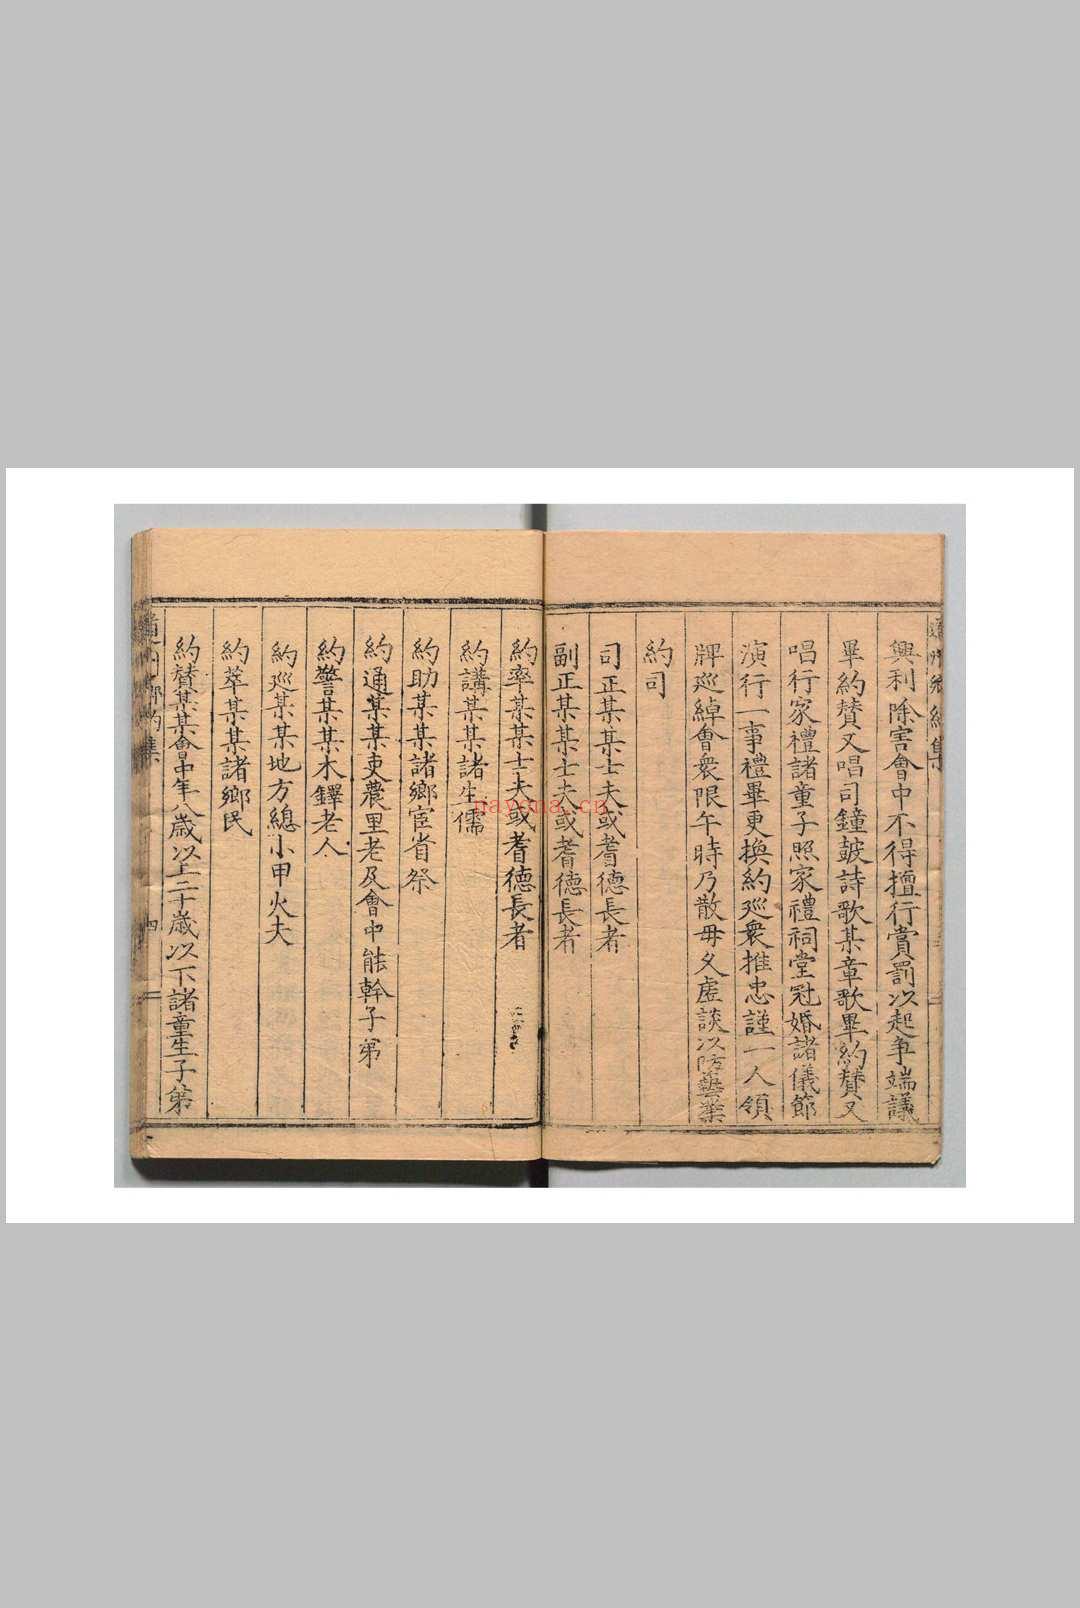 興利除害會中不得擅行賞罰以起争端議
畢約賛又唱司鐘皷詩歌某章歌畢約賛又
唱行家禮諸童子照家禮祠堂冠婚諸儀節
演行一事禮畢更換約廵衆推忠謹一人領
牌廵綽會衆限午時乃散毋久虛談以防藝業
約司
司正某某士夫或耆德長者
副正某某士夫或耆德長者
約率某某士夫或耆德長者
約講某某諸生儒
約助某某諸鄉宦省祭
約通某某吏農里老及會中能幹子第
約警某某木鐸老人
約廵某某地方總小甲火夫
約萃某某諸鄉民
約賛某某會中年八歲以上二十歲以下諸童生子第
四
nayona.cn